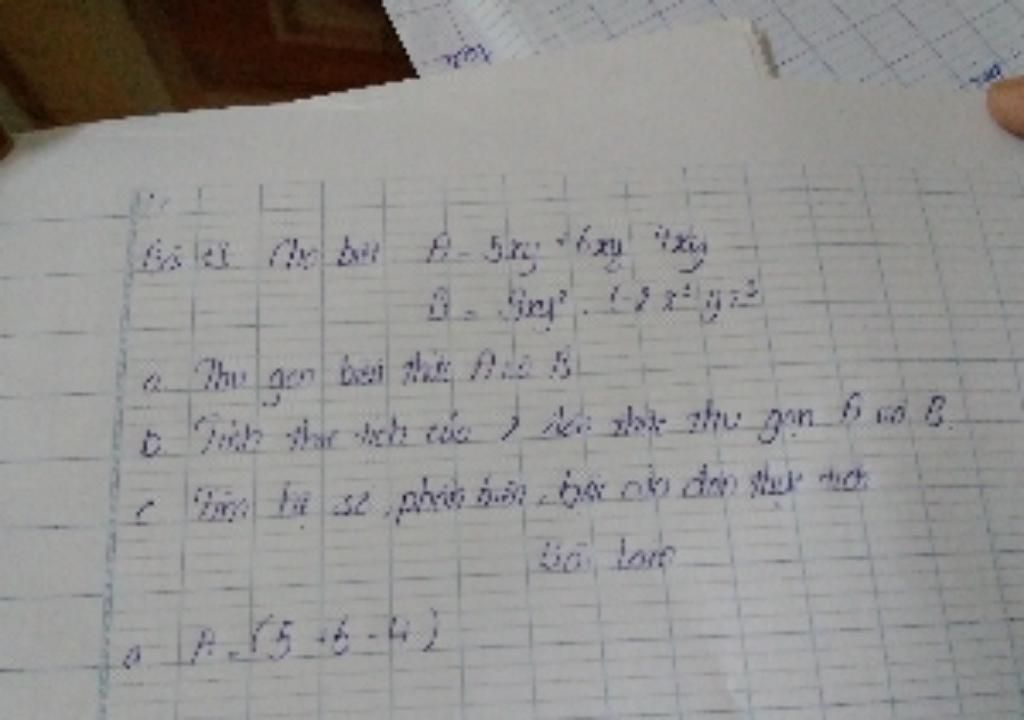 Cho biết A = 5xy + 6xy 4xy
B = 9xy² . (-2x²yz³
a Thu gọn biểu thức A và B
b Tính tích của 2 đơn thức thu gọn A và B.
c Tìm hệ số, phần biến, bậc của đơn thức tích
Bài làm
a A = (5 + 6 - 4)